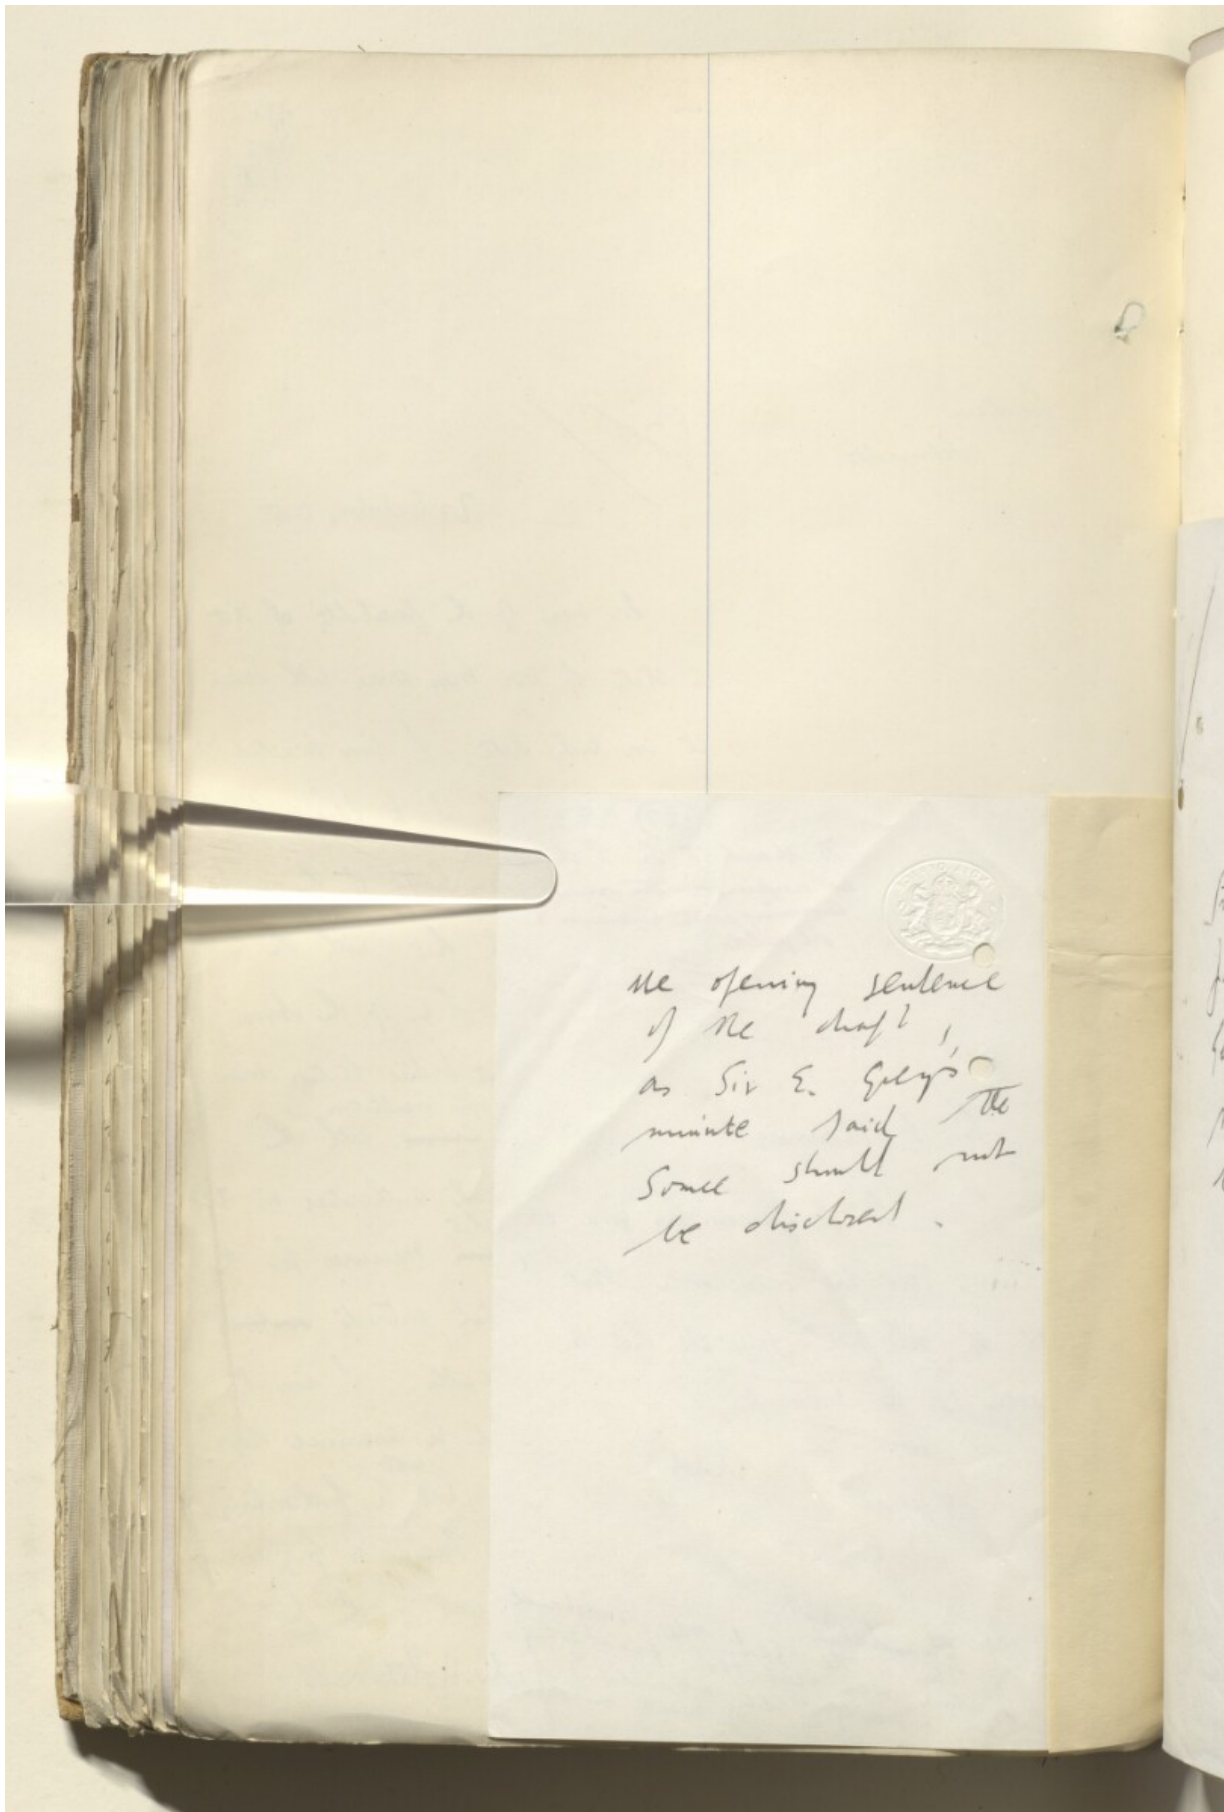 the opening sentence
of the draft,
as Sir E. Grey's
minute said the
source should not
be disclosed.